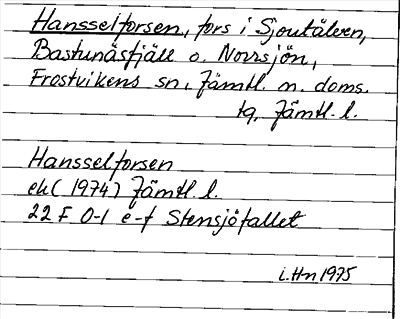 Hansselforsen, fors i Sjoutälven,
Bastunäsfjäll o. Norrsjön,
Frostvikens sn, Jämtl. n. doms.
tg, Jämtl. l.
Hansselforsen
ek (1974) Jämtl. l.
22 F 0-1 e-f Stensjöfallet
i. Hn 1975